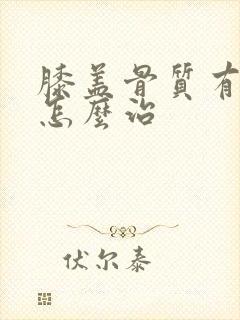 膝盖骨質有
怎麼治
伏尔泰